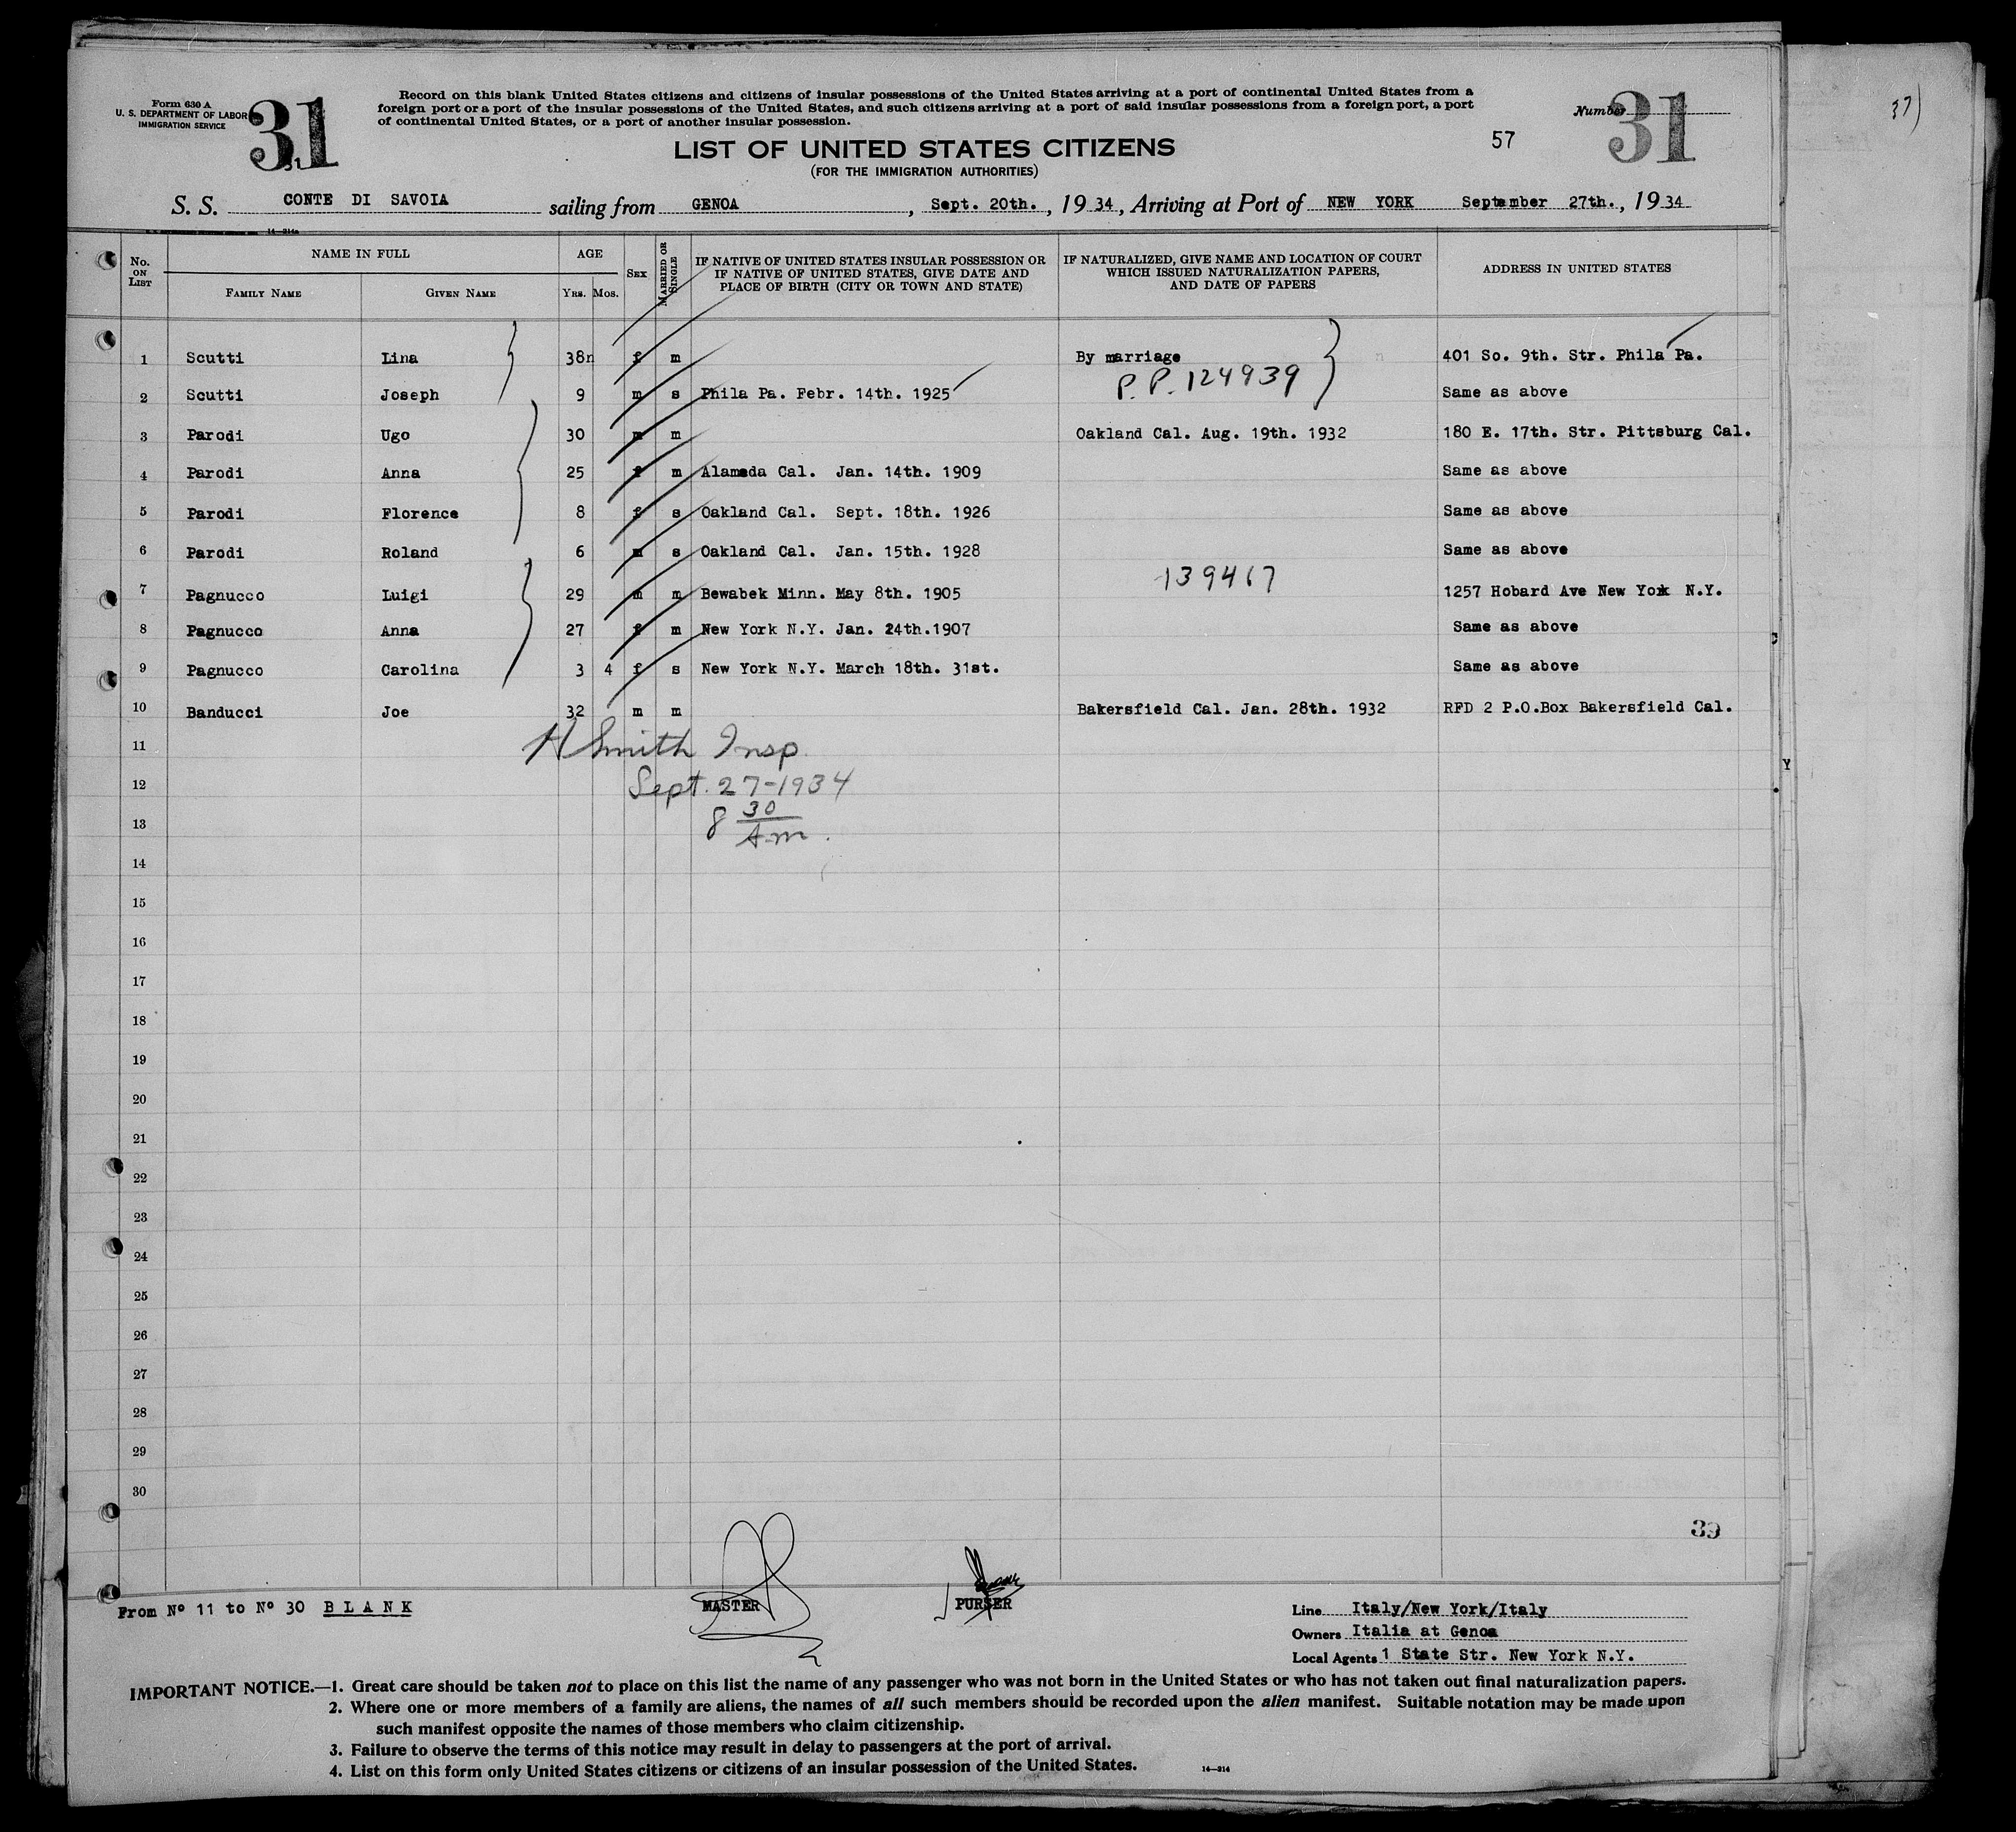 Form 630 A
U. S. DEPARTMENT OF LABOR
IMMIGRATION SERVICE
31
Record on this blank United States citizens and citizens of insular possessions of the United States arriving at a port of continental United States from a
foreign port or a port of the insular possessions of the United States, and such citizens arriving at a port of said insular possessions from a foreign port, a port
of continental United States, or a port of another insular possession.
Number 31
57
37)
LIST OF UNITED STATES CITIZENS
(FOR THE IMMIGRATION AUTHORITIES)
S. S. CONTE DI SAVOIA sailing from GENOA, Sept. 20th., 1934, Arriving at Port of NEW YORK September 27th., 1934
14—214a
No. ON LIST NAME IN FULL AGE SEX MARRIED OR SINGLE IF NATIVE OF UNITED STATES INSULAR POSSESSION OR IF NATIVE OF UNITED STATES, GIVE DATE AND PLACE OF BIRTH (CITY OR TOWN AND STATE) IF NATURALIZED, GIVE NAME AND LOCATION OF COURT WHICH ISSUED NATURALIZATION PAPERS, AND DATE OF PAPERS ADDRESS IN UNITED STATES
FAMILY NAME GIVEN NAME YRS. MOS.
1 Scutti Lina 38n f m By marriage 401 So. 9th. Str. Phila Pa.
P.P. 124939
2 Scutti Joseph 9 m s Phila Pa. Febr. 14th. 1925 Same as above
3 Parodi Ugo 30 m m Oakland Cal. Aug. 19th. 1932 180 E. 17th. Str. Pittsburg Cal.
4 Parodi Anna 25 f m Alameda Cal. Jan. 14th. 1909 Same as above
5 Parodi Florence 8 f s Oakland Cal. Sept. 18th. 1926 Same as above
6 Parodi Roland 6 m s Oakland Cal. Jan. 15th. 1928 Same as above
139467
7 Pagnucco Luigi 29 m m Bewabek Minn. May 8th. 1905 1257 Hobard Ave New York N.Y.
8 Pagnucco Anna 27 f m New York N.Y. Jan. 24th.1907 Same as above
9 Pagnucco Carolina 3 4 f s New York N.Y. March 18th. 31st. Same as above
10 Banducci Joe 32 m m Bakersfield Cal. Jan. 28th. 1932 RFD 2 P.O.Box Bakersfield Cal.
11 H Smith Insp.
12 Sept. 27-1934
13 8 30 A.m.
14
15
16
17
18
19
20
21
22
23
24
25
26
27
28
29
30
39
From No 11 to No 30 BLANK
MASTER
PURSER
Line Italy/New York/Italy
Owners Italia at Genoa
Local Agents 1 State Str. New York N.Y.
IMPORTANT NOTICE.—1. Great care should be taken not to place on this list the name of any passenger who was not born in the United States or who has not taken out final naturalization papers.
2. Where one or more members of a family are aliens, the names of all such members should be recorded upon the alien manifest. Suitable notation may be made upon
such manifest opposite the names of those members who claim citizenship.
3. Failure to observe the terms of this notice may result in delay to passengers at the port of arrival.
4. List on this form only United States citizens or citizens of an insular possession of the United States.
14—214